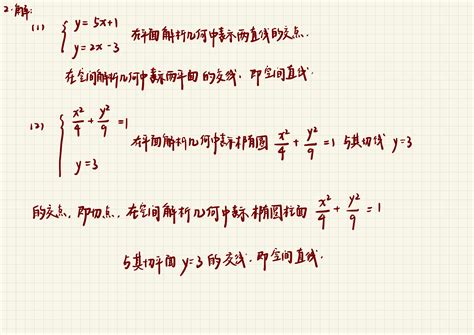 2.解:
(1) { y = 5x+1
y = 2x -3 在平面解析几何中表示两直线的交点.
在空间解析几何中表示两平面的交线, 即空间直线.
(2) { x²/4 + y²/9 = 1
y = 3 在平面解析几何中表示椭圆 x²/4 + y²/9 = 1 与其切线 y = 3
的交点, 即切点. 在空间解析几何中表示椭圆柱面 x²/4 + y²/9 = 1
与其切平面 y = 3 的交线, 即空间直线.